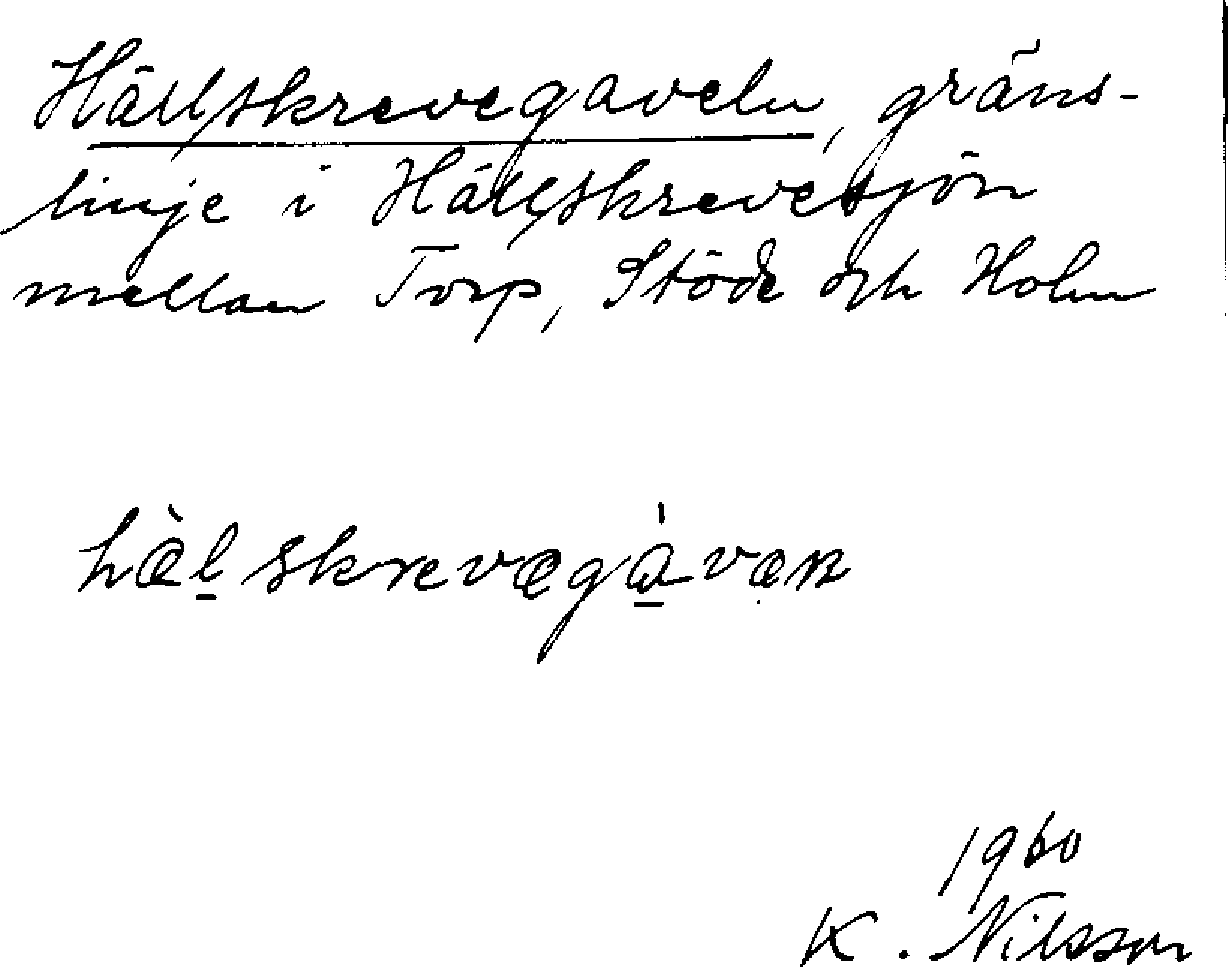 Hällskrevegaveln, gräns-
linje i Hällskrevesjön
mellan Torp, Stöde och Holm
hæ̀l̲skrevægà̲væn
1960
K. Nilsson